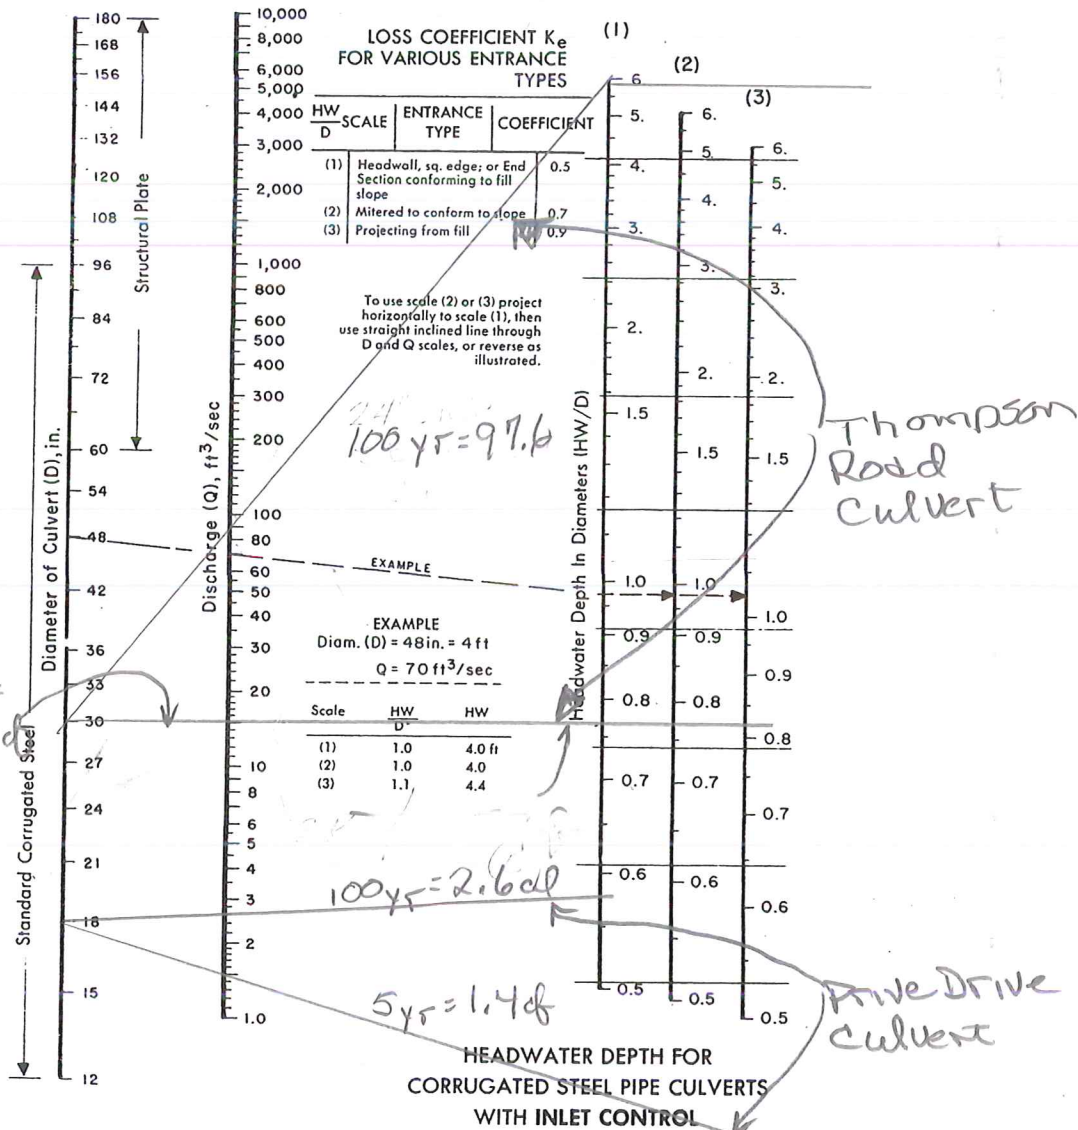 180
168
156
144
132
120
108
96
84
72
60
54
48
42
36
33
30
27
24
21
18
15
12
Structural Plate
Diameter of Culvert (D), in.
Standard Corrugated Steel
10,000
8,000
6,000
5,000
4,000
3,000
2,000
1,000
800
600
500
400
300
200
100
80
60
50
40
30
20
10
8
6
5
4
3
2
1.0
Discharge (Q), ft³/sec
LOSS COEFFICIENT Ke
FOR VARIOUS ENTRANCE
TYPES
HW/D SCALE ENTRANCE TYPE COEFFICIENT
(1) Headwall, sq. edge; or End 0.5
Section conforming to fill
slope
(2) Mitered to conform to slope 0.7
(3) Projecting from fill 0.9
To use scale (2) or (3) project
horizontally to scale (1), then
use straight inclined line through
D and Q scales, or reverse as
illustrated.
100 yr = 97.6
EXAMPLE
EXAMPLE
Diam. (D) = 48 in. = 4 ft
Q = 70 ft³/sec
Scale HW/D HW
(1) 1.0 4.0 ft
(2) 1.0 4.0
(3) 1.1 4.4
100yr = 2.6
5yr = 1.4
Headwater Depth In Diameters (HW/D)
(1)
6.
5.
4.
3.
2.
1.5
1.0
0.9
0.8
0.7
0.6
0.5
(2)
6.
5.
4.
3.
2.
1.5
1.0
0.9
0.8
0.7
0.6
0.5
(3)
6.
5.
4.
3.
2.
1.5
1.0
0.9
0.8
0.7
0.6
0.5
Thompson
Road
Culvert
Drive
Culvert
HEADWATER DEPTH FOR
CORRUGATED STEEL PIPE CULVERTS
WITH INLET CONTROL